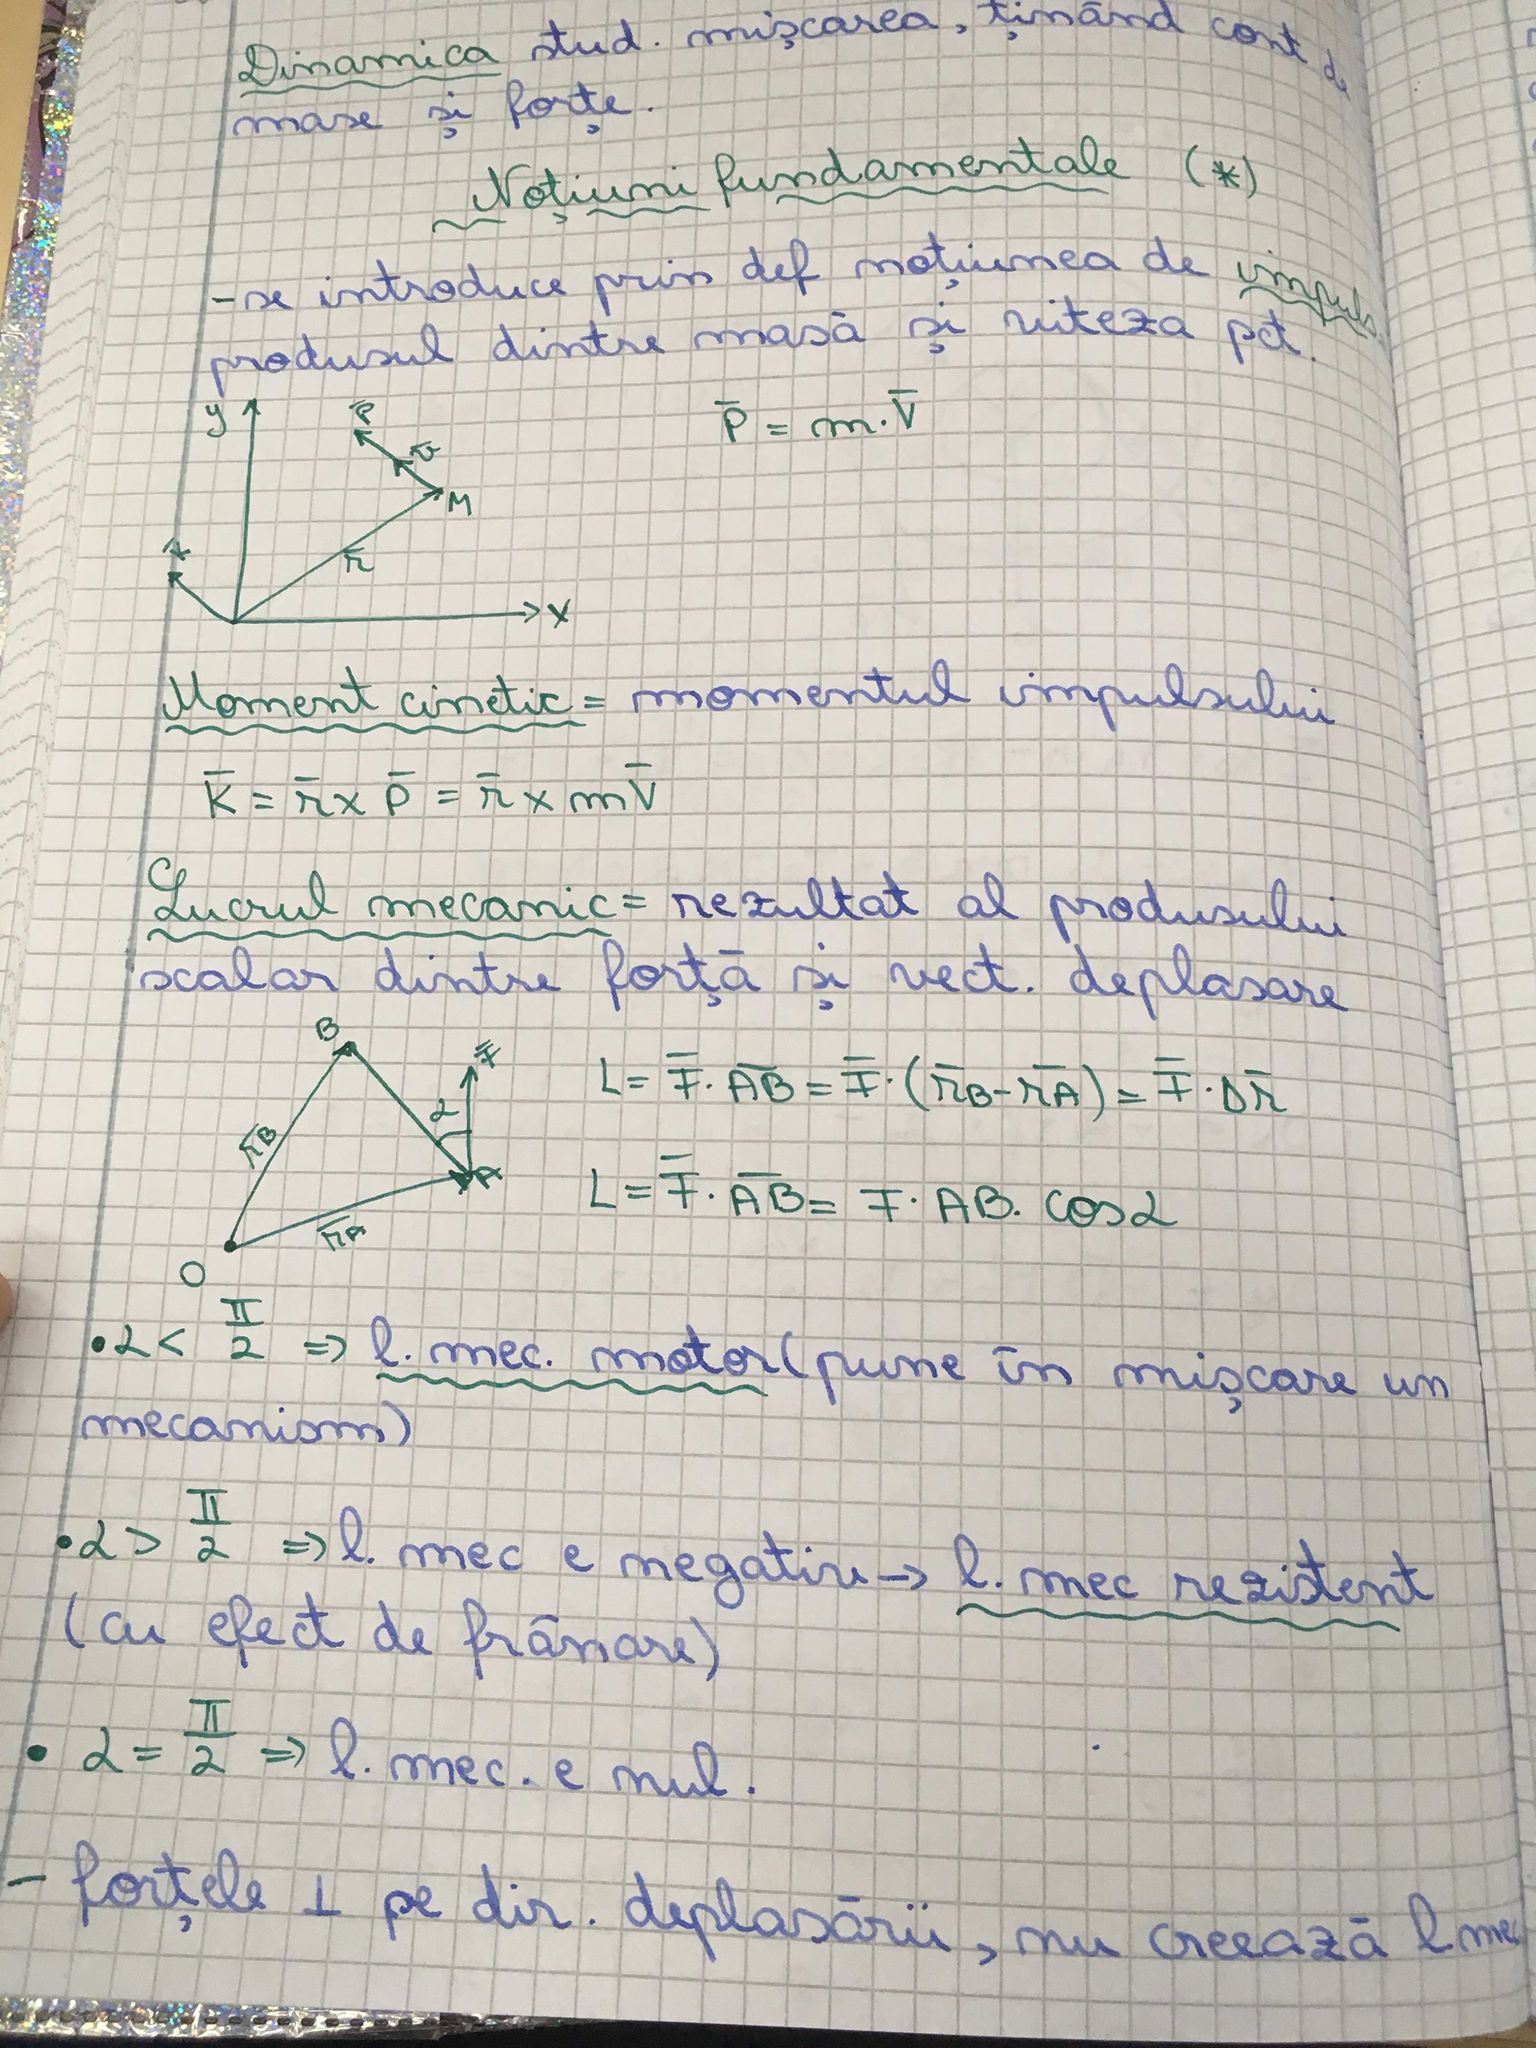 Dinamica stud. mișcarea, ținând cont de
mase și forțe.
Noțiuni fundamentale (*)
- se introduce prin def noțiunea de impuls
produsul dintre masă și viteza pct.
y
P̄
v̄
M
P̄ = m·V̄
z
r̄
x
Moment cinetic = momentul impulsului
K̄ = r̄ x P̄ = r̄ x mV̄
Lucrul mecanic = rezultat al produsului
scalar dintre forță și vect. deplasare
B
F̄
α
r̄B
A
r̄A
O
L = F̄·A̅B̅ = F̄·(r̄B - r̄A) = F̄·Δr̄
L = F̄·A̅B̅ = F·AB·cosα
• α < π/2 => l. mec. motor (pune în mișcare un
mecanism)
• α > π/2 => l. mec e negativ -> l. mec rezistent
(cu efect de frânare)
• α = π/2 => l. mec. e nul.
- forțele ⊥ pe dir. deplasării, nu creează l mec